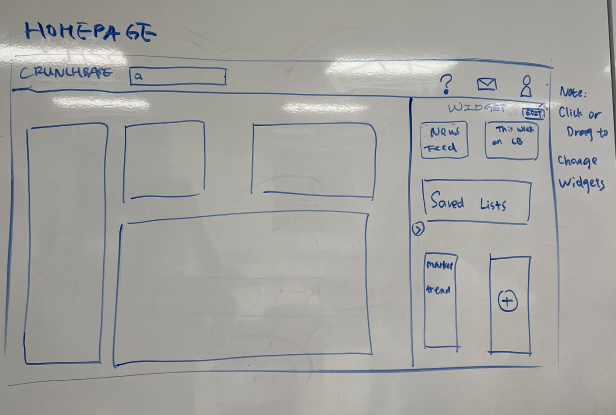 HOMEPAGE
CRUNCHBASE
?
WIDGET
EDIT
News
Feed
This week
on CB
Saved Lists
>
market
trend
+
Note:
Click or
Drag to
Change
Widgets